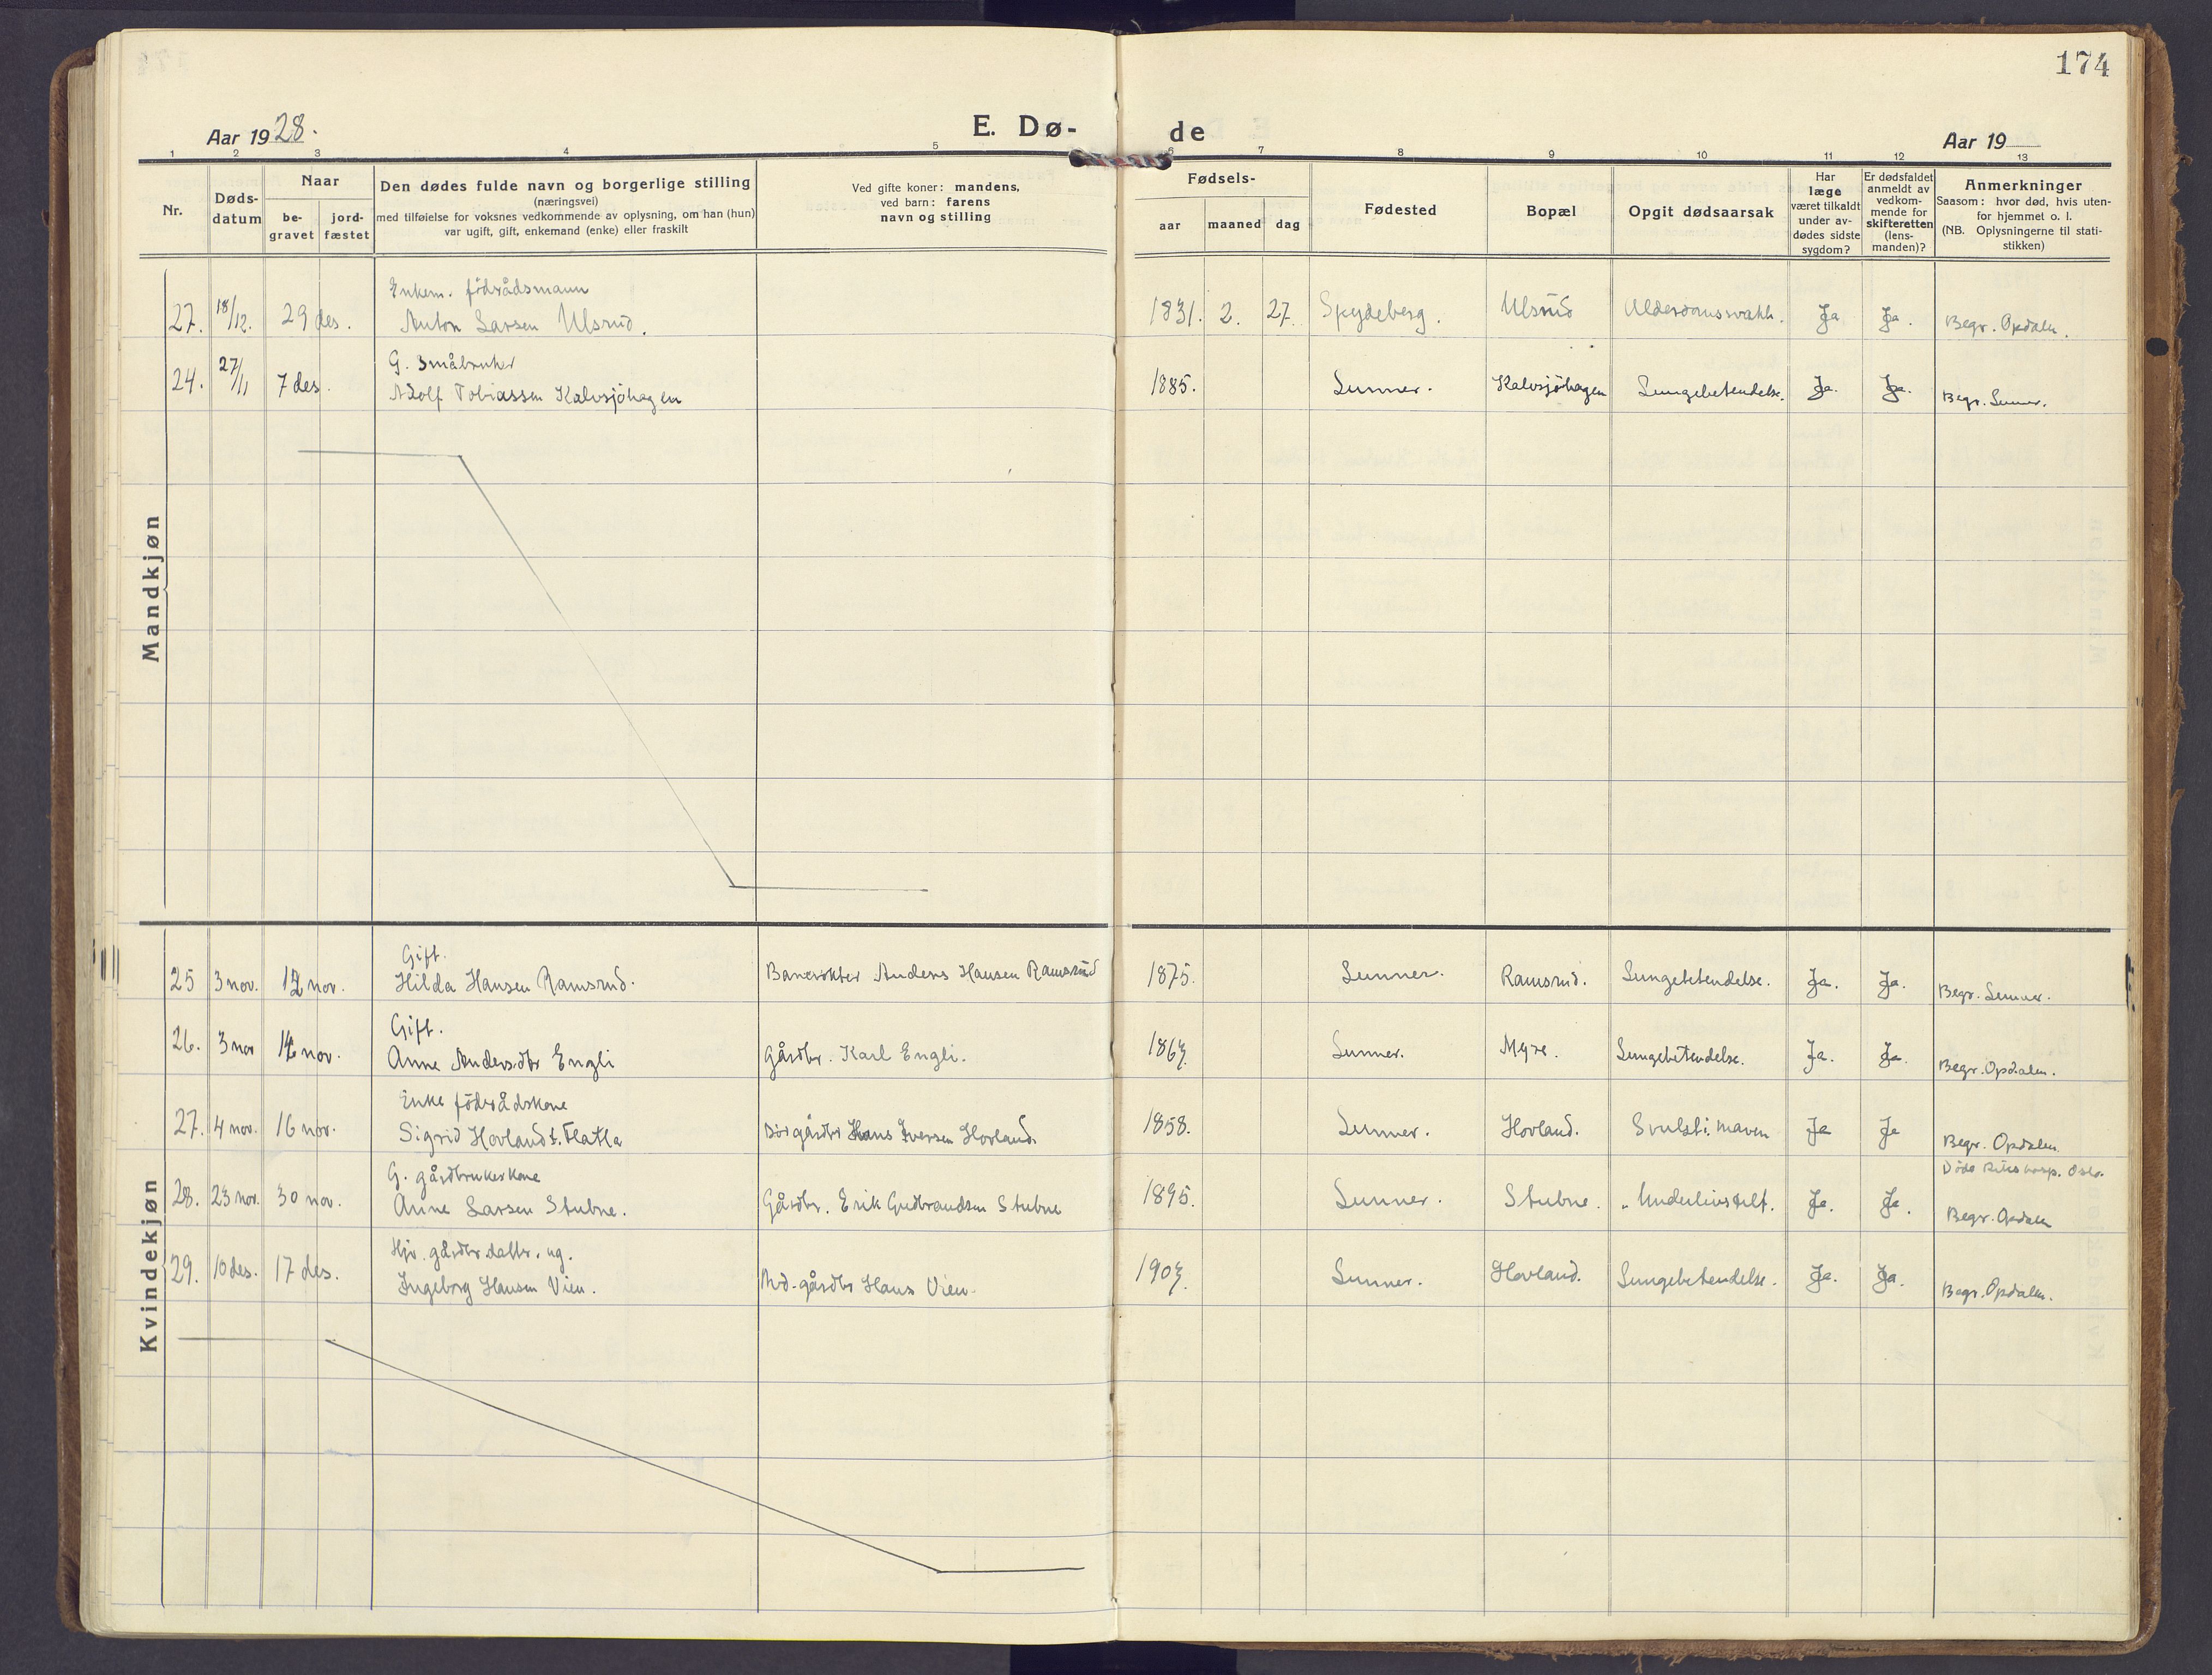 174
Aar 1928.
E. Dø-
de
Aar 19
1 2 3 4 5 6 7 8 9 10 11 12 13
Nr.
Døds-
datum
Naar
be-
gravet
jord-
fæstet
Den dødes fulde navn og borgerlige stilling
(næringsvei)
med tilføielse for voksnes vedkommende av oplysning, om han (hun)
var ugift, gift, enkemand (enke) eller fraskilt
Ved gifte koner: mandens,
ved barn: farens
navn og stilling
Fødsels-
aar
maaned
dag
Fødested
Bopæl
Opgit dødsaarsak
Har
læge
været tilkaldt
under av-
dødes sidste
sygdom?
Er dødsfaldet
anmeldt av
vedkom-
mende for
skifteretten
(lens-
manden)?
Anmerkninger
Saasom: hvor død, hvis uten-
for hjemmet o. l.
(NB. Oplysningerne til stati-
stikken)
Mandkjøn
Enkem. födrådsmann
27. 18/12. 29 des. Anton Larsen Ulsrud. 1831. 2. 27. Spydeberg. Ulsrud Alderdomssvakh. Ja Ja. Begr. Opdalen.
G. Småbruker
24. 27/11 7 des. Adolf Tobiassen Kalvsjöhagen 1885. Lunner. Kalvsjöhagen Lungebetendelse. Ja. Ja. Begr. Lunner.
Kvindekjøn
Gift.
25 3 nov. 12 nov. Hilda Hansen Ramsrud. Banevokter Anders Hansen Ramsrud 1875. Lunner. Ramsrud. Lungebetendelse. Ja. Ja. Begr. Lunner.
Gift.
26. 3 nov nov. Anne Andersdtr Engli Gårdbr. Karl Engli. 1867. Lunner. Myre. Lungebetendelse. Ja. Ja. Begr. Opdalen.
Enke födrådskone
27. 4 nov. 16 nov. Sigrid Hovland f. Flatla gårdbr Hans Iversen Hovland. 1858. Lunner. Hovland. Svulst i maven Ja Ja Begr. Opdalen
G. gårdbrukerkone
Döde Rikshosp. Oslo.
28. 23 nov. 30 nov. Anne Larsen Stubne. Gårdbr. Erik Gudbrandsen Stubne 1895. Lunner. Stubne. Underlivstilf. Ja. Ja. Begr. Opdalen
Hjv. gårdbr.dattr. ug.
29. 10 des. 17 des. Ingeborg Hansen Vien. gårdbr Hans Vien. 1907. Lunner. Hovland. Lungebetendelse. Ja. Ja. Begr. Opdalen.